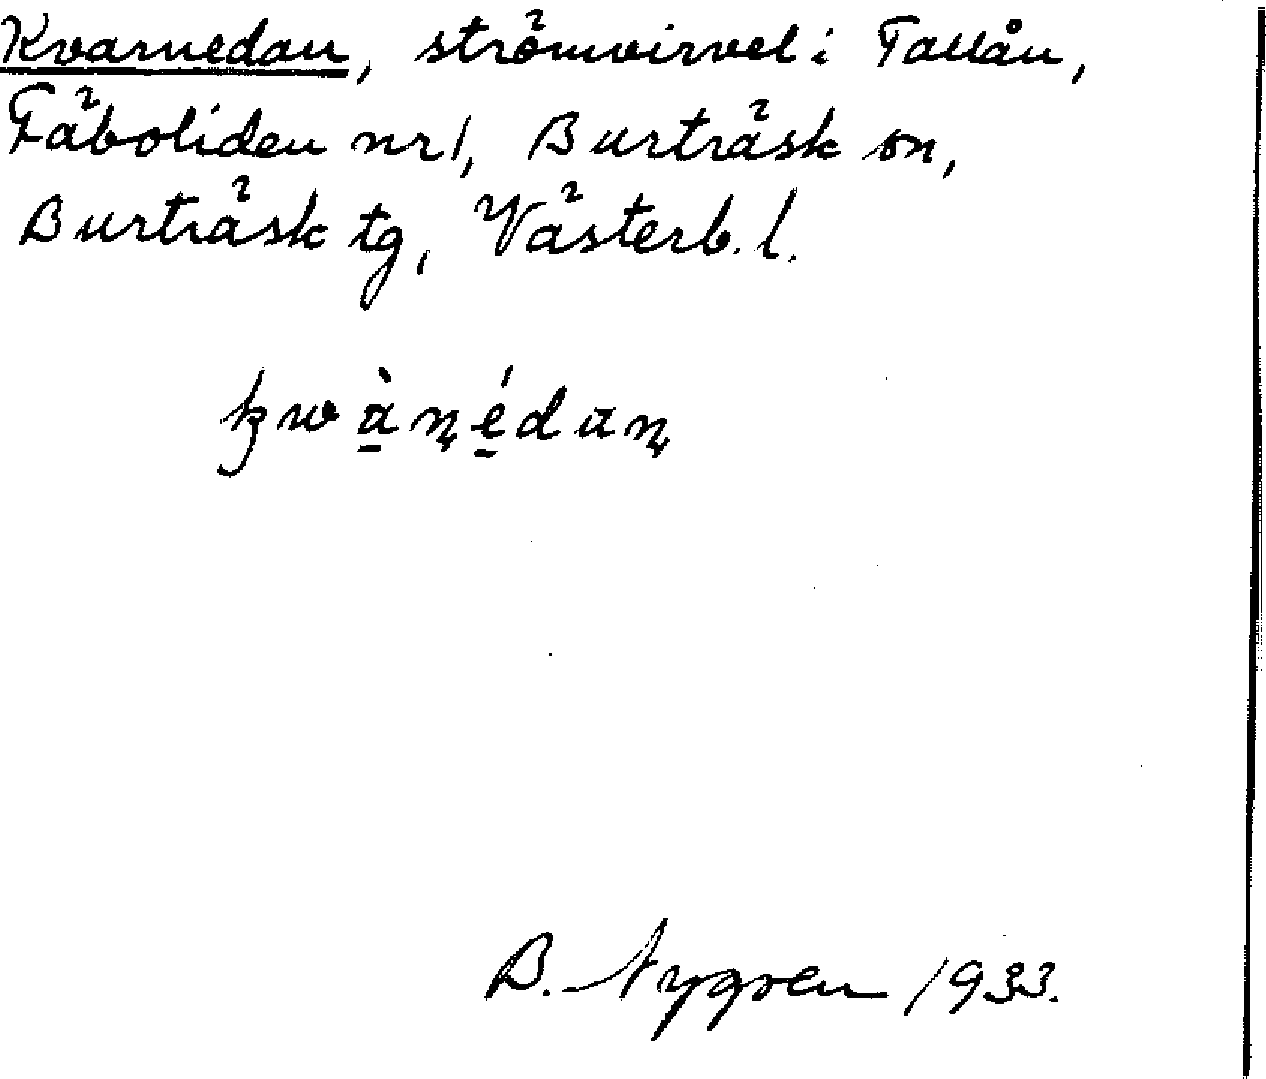 Kvarnedan, strömvirvel i Tallån,
Fäboliden nr 1, Burträsk sn,
Burträsk tg, Västerb. l.
kwànédan
B. Nygren 1933.